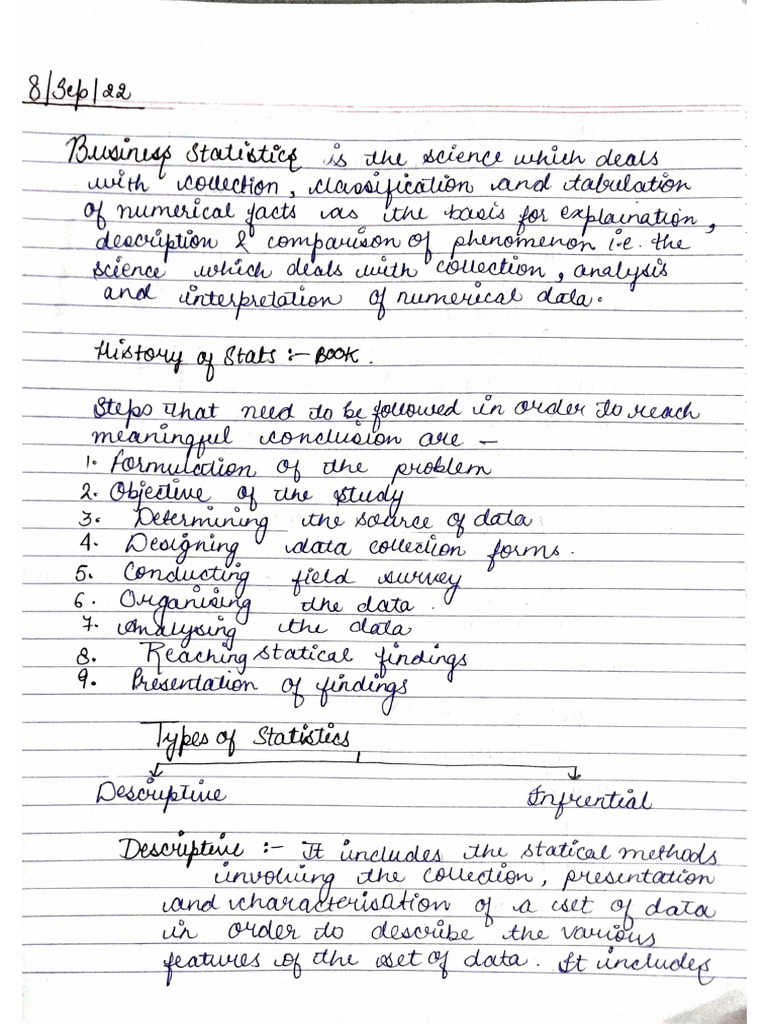 8/Sep/22
Business Statistics is the science which deals
with collection, classification and tabulation
of numerical facts as the basis for explaination,
description & comparison of phenomenon i.e. the
science which deals with collection, analysis
and interpretation of numerical data.
History of Stats :- BOOK.
Steps that need to be followed in order to reach
meaningful conclusion are -
1. Formulation of the problem
2. Objective of the study
3. Determining the source of data
4. Designing data collection forms.
5. Conducting field survey
6. Organising the data.
7. Analysing the data
8. Reaching statical findings
9. Presentation of findings
Types of Statistics
Descriptive Infrential
Descriptive :- It includes the statical methods
involving the collection, presentation
and characterisation of a set of data
in order to describe the various
features of the set of data. It includes